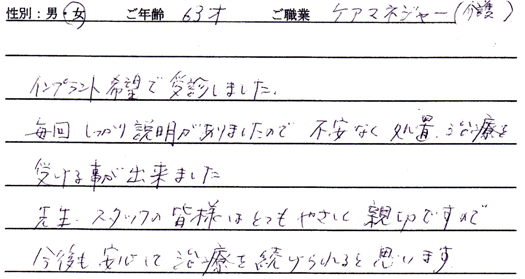 性別：男・女　ご年齢　63才　ご職業　ケアマネジャー（介護）
インプラント希望で受診しました.
毎回 しっかり説明がありましたので 不安なく 処置、治療を
受ける事が出来ました
先生、スタッフの皆様はとてもやさしく 親切ですので
今後も安心して 治療を続けられると思います